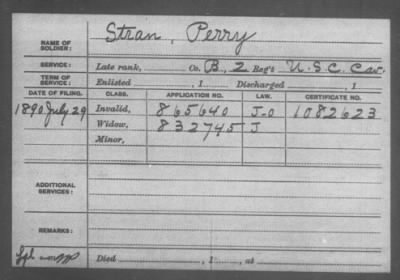 NAME OF SOLDIER: Stran, Perry
SERVICE: Late rank, Co. B, 2 Reg't U.S.C. Cav.
TERM OF SERVICE: Enlisted , 1 Discharged , 1
DATE OF FILING. CLASS. APPLICATION NO. LAW. CERTIFICATE NO.
1890 July 29 Invalid, 865640 J-O 1082623
Widow, 832745 J
Minor,
ADDITIONAL SERVICES:
REMARKS:
Died , 1 , at